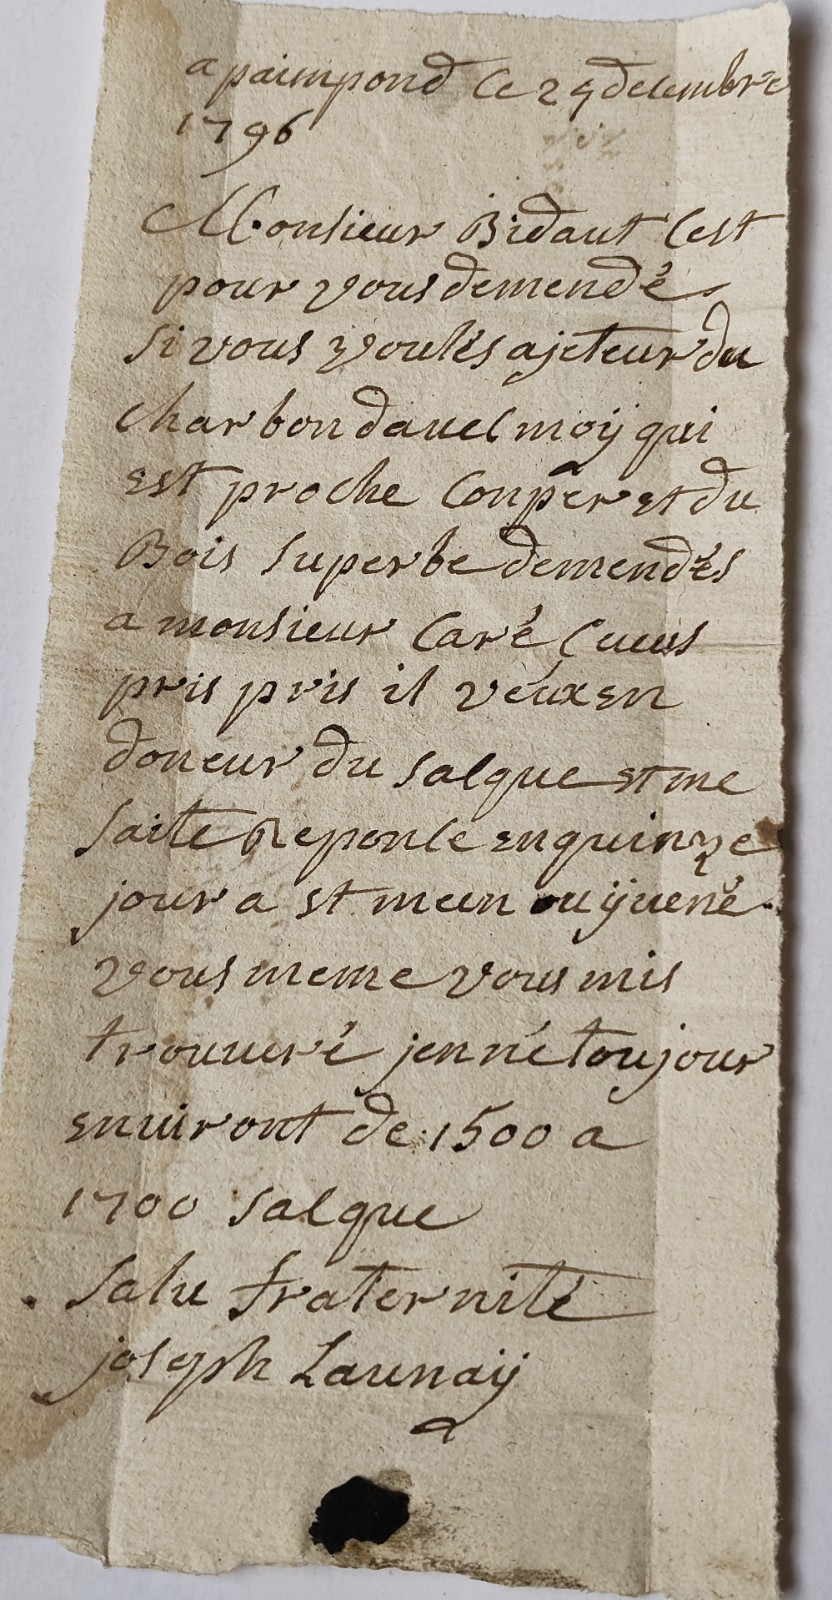 a paimpond ce 29 decembre
1796
Monsieur Bidaut Cest
pour vous demendé
si vous voulés ajeteur du
charbon davec moÿ qui
est proche Conper et du
Bois superbe demendés
a monsieur Caré
pris pris il veux en
doneur du salque et me
faite Reponce en quinze
jour a st meen ou ÿ vené
vous meme vous mis
trouveré jenné toujour
environt de 1500 a
1700 salque
salu fraternité
joseph Launaÿ